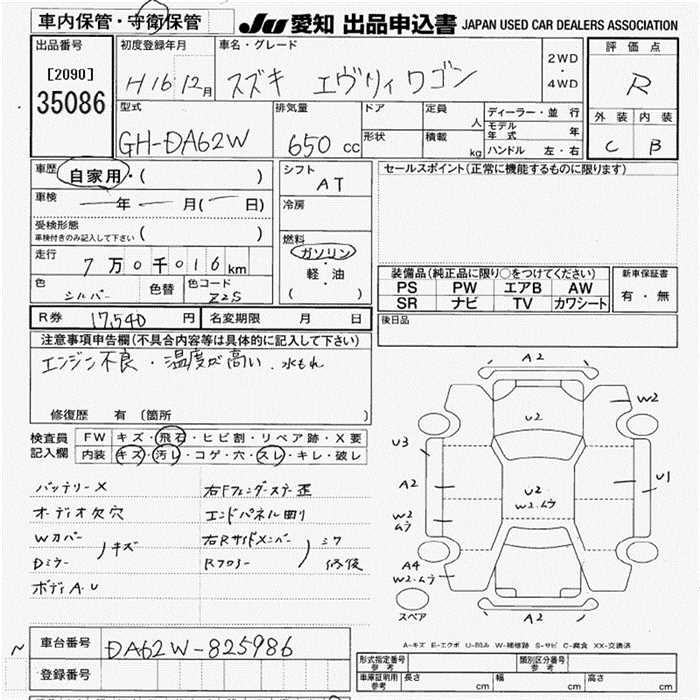 車内保管・守衛保管
JU 愛知 出品申込書 JAPAN USED CAR DEALERS ASSOCIATION
出品番号
[2090]
35086
初度登録年月
H16 12月
車名・グレード
スズキ エヴリィワゴン
2WD
・
4WD
評価点
R
外装 内装
C B
型式
GH-DA62W
排気量
650 cc
ドア
形状
定員
人
積載
kg
ディーラー・並行
モデル年式 年
ハンドル 左・右
車歴 自家用・( )
車検 ー年 ー月(ー日)
受検形態
車検付きのみ記入して下さい ( )
走行 7万0千016km
色 シルバー 色替 色コード Z2S
シフト
AT
冷房
燃料
ガソリン
・
軽・油
( )
セールスポイント(正常に機能するものに限ります)
装備品(純正品に限り○をつけてください)
PS PW エアB AW
SR ナビ TV カワシート
新車保証書
有・無
後日品
R券 17,540円 名変期限 月 日
注意事項申告欄(不具合内容等は具体的に記入して下さい)
エンジン不良・温度が高い.水もれ
修復歴 有 (箇所 )
検査員 FW キズ・飛石・ヒビ割・リペア跡・X要
記入欄 内装 キズ・汚レ・コゲ・穴・スレ・キレ・破レ
バッテリーX
オーディオ欠穴
Wカバー
Dミラー
)キズ
ボディA.U
右Fフェンダーステー歪
エンドパネル凹リ
右Rサイドメンバー
Rフロアー
)
修復
A2
W2
U2
U3
A2
U1
U2
W2.ムラ
W2
ムラ
A4
W2.ムラ
スペア
A2
A-キズ E-エクボ U-凹み W-補修跡 S-サビ C-腐食 XX-交換済
車台番号 DA62W-825986
登録番号
形式指定番号
参考
類別区分番号
参考
車庫証明用
参考
長さ cm 幅 cm 高さ cm